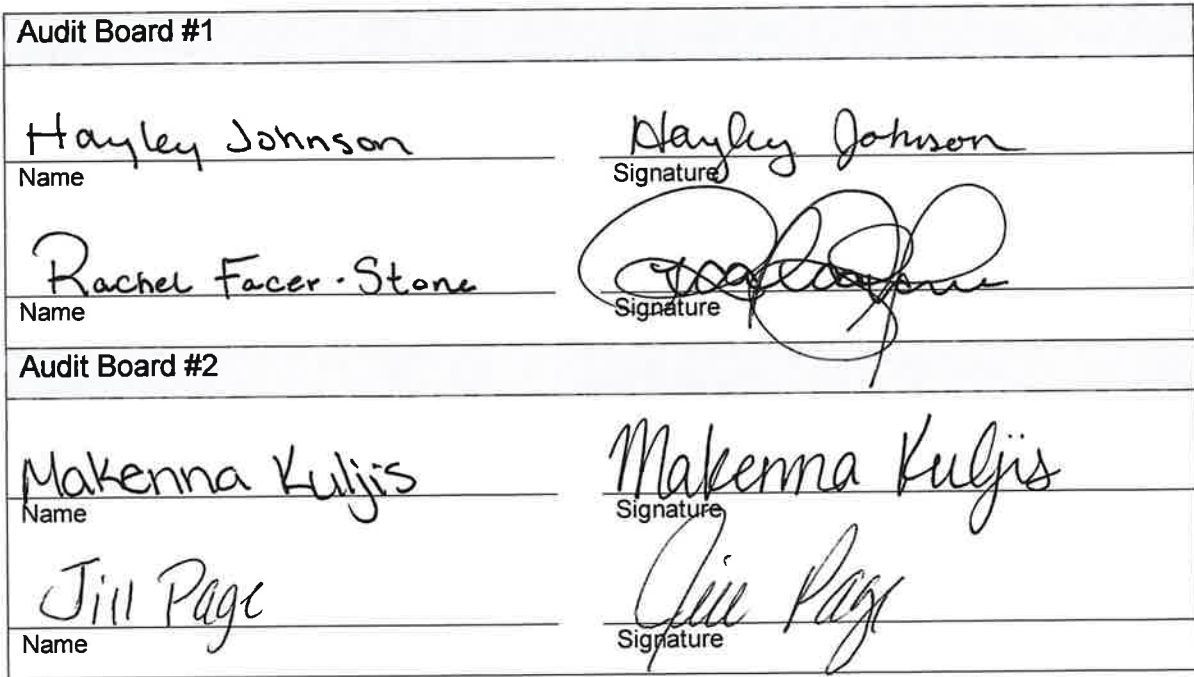 Audit Board #1
Hayley Johnson Hayley Johnson
Name Signature
Rachel Facer-Stone
Name Signature
Audit Board #2
Makenna Kuljis Makenna Kuljis
Name Signature
Jill Page Jill Page
Name Signature